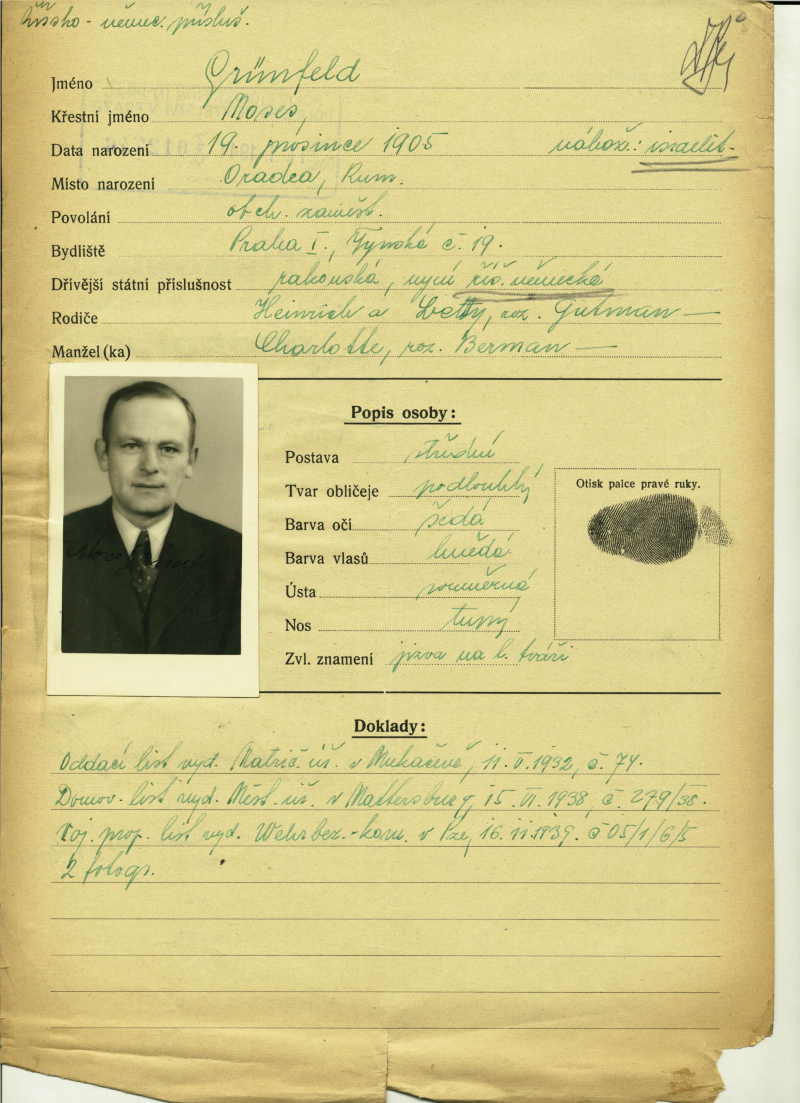 říšsko-němec. přísluš.
Jméno Grünfeld
Křestní jméno Moses,
Data narození 19. prosince 1905 nábož.: israelit.
Místo narození Oradea, Rum.
Povolání obch. zaměst.
Bydliště Praha I., Týnská č. 19.
Dřívější státní příslušnost rakouská, nyní říš. německá
Rodiče Heinrich a Betty, roz. Gutman —
Manžel (ka) Charlotte, roz. Berman —
Popis osoby:
Postava střední
Tvar obličeje podlouhlý
Otisk palce pravé ruky.
Barva očí šedá
Barva vlasů hnědá
Ústa souměrná
Nos tupý
Zvl. znamení jizva na l. tváři
Doklady:
Oddací list vyd. Matrič. úř. v Mukačevě, 11. II. 1932, č. 74.
Domov. list vyd. Měst. úř. v Mattersburg, 15. VI. 1938, č. 279/38.
Voj. prop. list vyd. Wehrbez.-kom. v Pze, 16. 11. 1939. č 05/1/6/5
2 fotogr.